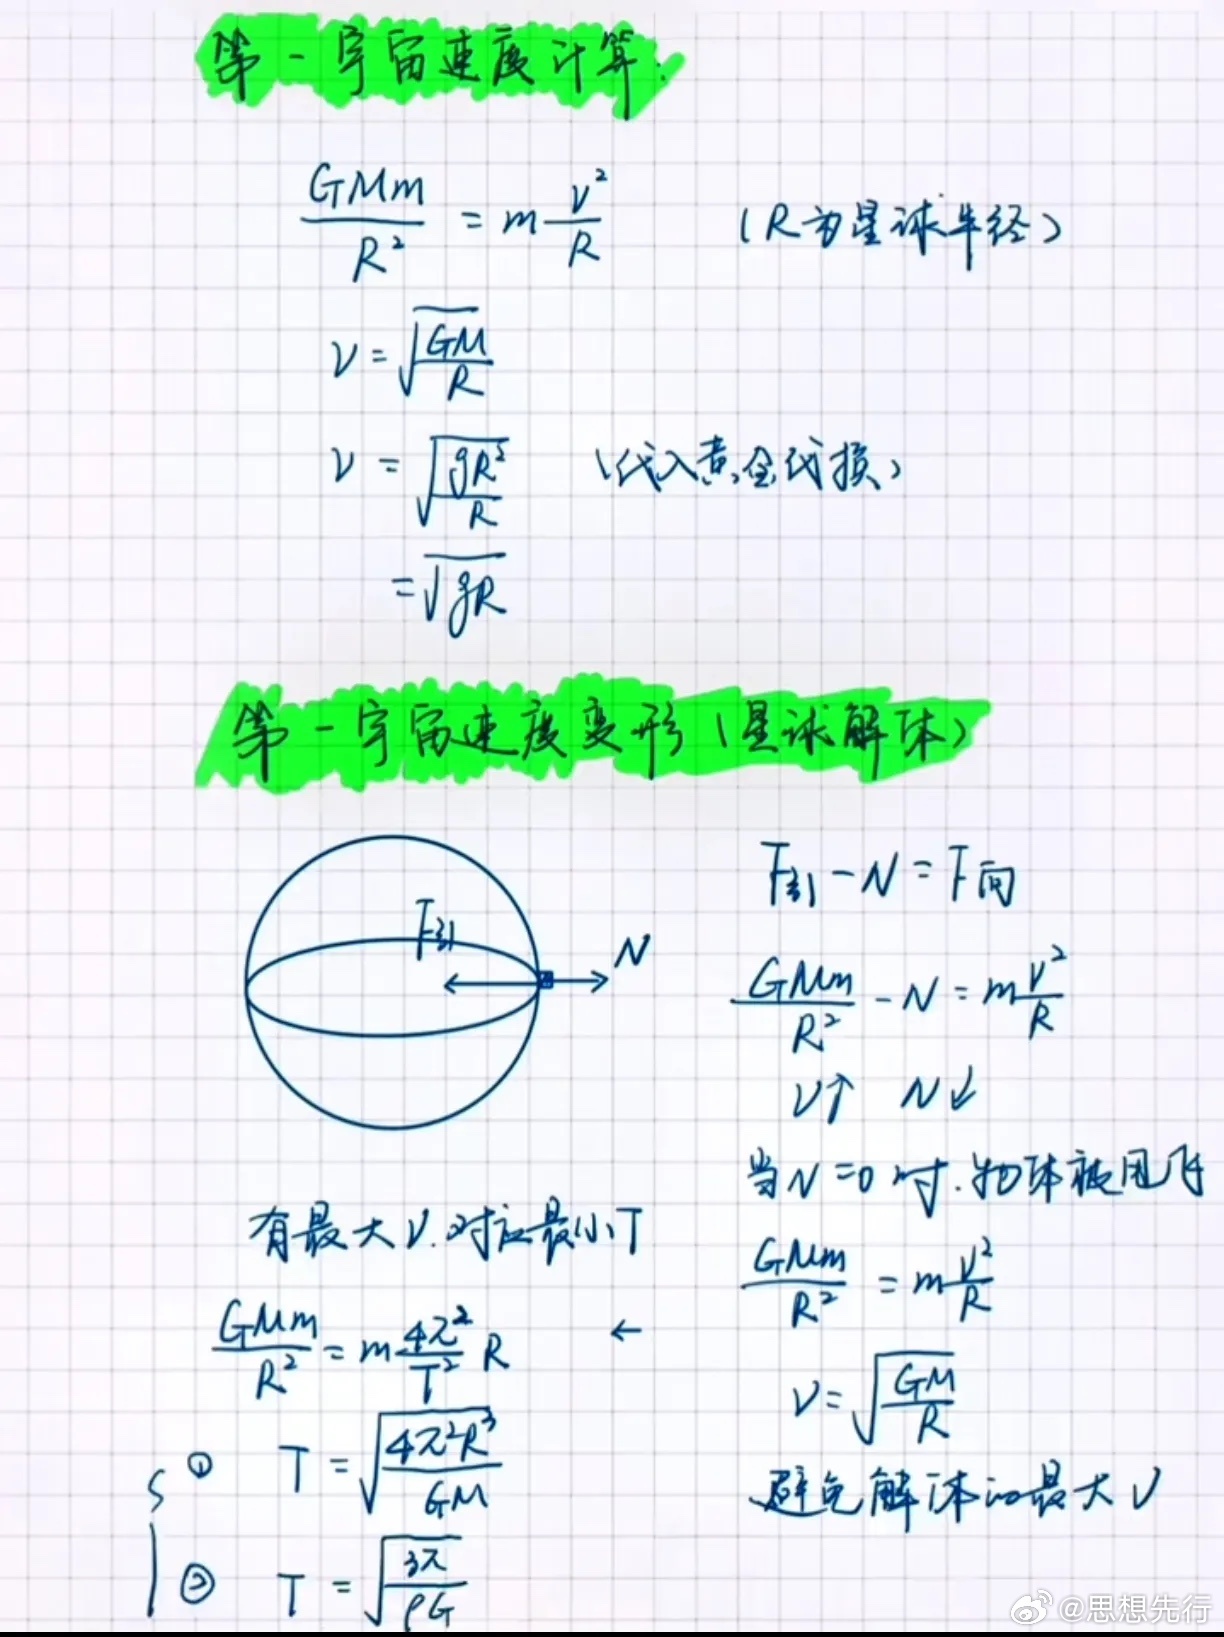 第一宇宙速度计算:
GMm/R² = m v²/R （R为星球半径）
v = √(GM/R)
v = √(gR²/R) （代入黄金代换）
= √(gR)
第一宇宙速度变形（星球解体）
F引
N
F引 - N = F向
GMm/R² - N = m v²/R
v↑ N↓
当N=0时.物体被甩飞
GMm/R² = m v²/R
v = √(GM/R)
避免解体的最大v
有最大v.对应最小T
GMm/R² = m 4π²/T² R ←
① T = √(4π²R³/GM)
② T = √(3π/ρG)
@思想先行